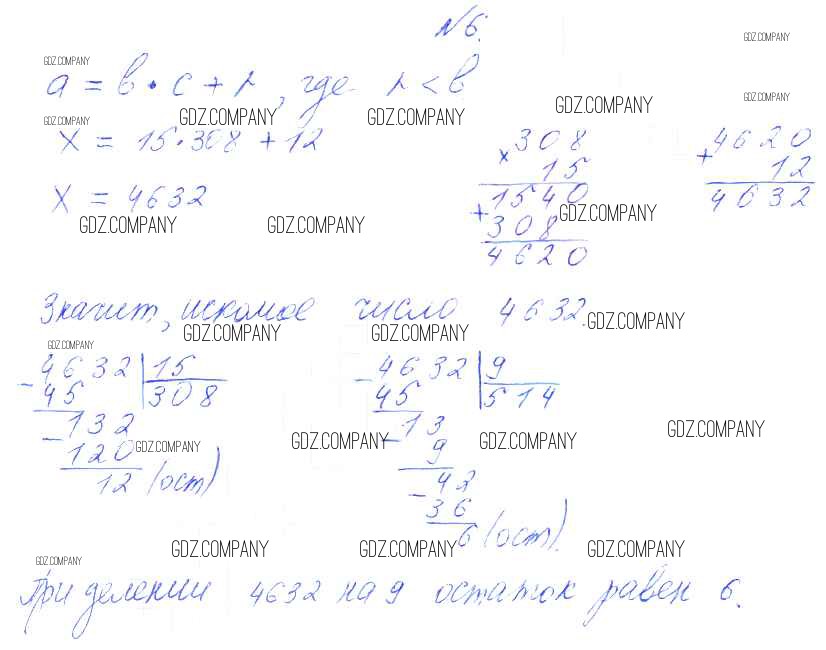 №6.
GDZ.COMPANY
GDZ.COMPANY
a = b · c + r, где r < b
GDZ.COMPANY
GDZ.COMPANY GDZ.COMPANY GDZ.COMPANY
GDZ.COMPANY
x = 15·308 + 12
x = 4632
308
× 15
1540
+ 308
4620
4620
+ 12
4632
GDZ.COMPANY GDZ.COMPANY GDZ.COMPANY
Значит, искомое число 4632.
GDZ.COMPANY GDZ.COMPANY GDZ.COMPANY
GDZ.COMPANY
- 4632 | 15
45 308
- 132
120
12 (ост)
- 4632 | 9
45 514
- 13
9
- 42
36
6 (ост).
GDZ.COMPANY GDZ.COMPANY GDZ.COMPANY GDZ.COMPANY
GDZ.COMPANY GDZ.COMPANY GDZ.COMPANY
GDZ.COMPANY
При делении 4632 на 9 остаток равен 6.